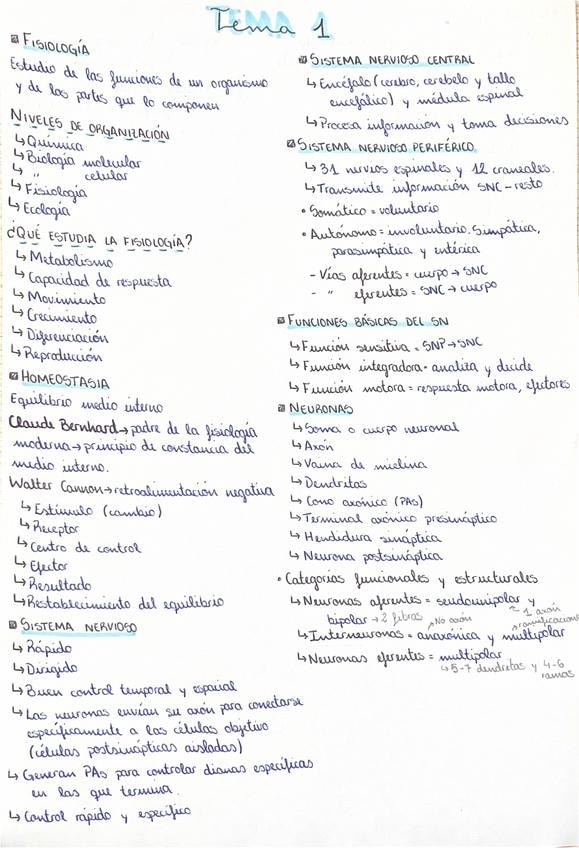 Tema 1
FISIOLOGÍA
Estudio de las funciones de un organismo
y de las partes que lo componen
NIVELES DE ORGANIZACIÓN
↳ Química
↳ Biología molecular
↳ " celular
↳ Fisiología
↳ Ecología
¿QUÉ ESTUDIA LA FISIOLOGÍA?
↳ Metabolismo
↳ Capacidad de respuesta
↳ Movimiento
↳ Crecimiento
↳ Diferenciación
↳ Reproducción
HOMEOSTASIA
Equilibrio medio interno
Claude Bernhard → padre de la fisiología
moderna → principio de constancia del
medio interno.
Walter Cannon → retroalimentación negativa
↳ Estímulo (cambio)
↳ Receptor
↳ Centro de control
↳ Efector
↳ Resultado
↳ Restablecimiento del equilibrio
SISTEMA NERVIOSO
↳ Rápido
↳ Dirigido
↳ Buen control temporal y espacial
↳ Las neuronas envían su axón para conectarse
específicamente a las células objetivo
(células postsinápticas aisladas)
↳ Generan PAs para controlar dianas específicas
en las que termina.
↳ Control rápido y específico
SISTEMA NERVIOSO CENTRAL
↳ Encéfalo (cerebro, cerebelo y tallo
encefálico) y médula espinal
↳ Procesa información y toma decisiones
SISTEMA NERVIOSO PERIFÉRICO
↳ 31 nervios espinales y 12 craneales.
↳ Transmite información SNC - resto
• Somático = voluntario
• Autónomo = involuntario. Simpática,
parasimpática y entérica
- Vías aferentes = cuerpo → SNC
- " eferentes = SNC → cuerpo
FUNCIONES BÁSICAS DEL SN
↳ Función sensitiva = SNP → SNC
↳ Función integradora = analiza y decide
↳ Función motora = respuesta motora, efectores
NEURONAS
↳ Soma o cuerpo neuronal
↳ Axón
↳ Vaina de mielina
↳ Dendritas
↳ Cono axónico (PAs)
↳ Terminal axónico presináptico
↳ Hendidura sináptica
↳ Neurona postsináptica
• Categorías funcionales y estructurales
↳ Neuronas aferentes = seudounipolar y
bipolar → 2 fibras No axón 1 axón ramificaciones
↳ Interneuronas = anaxónica y multipolar
↳ Neuronas eferentes = multipolar
↳ 5-7 dendritas y 4-6
ramas